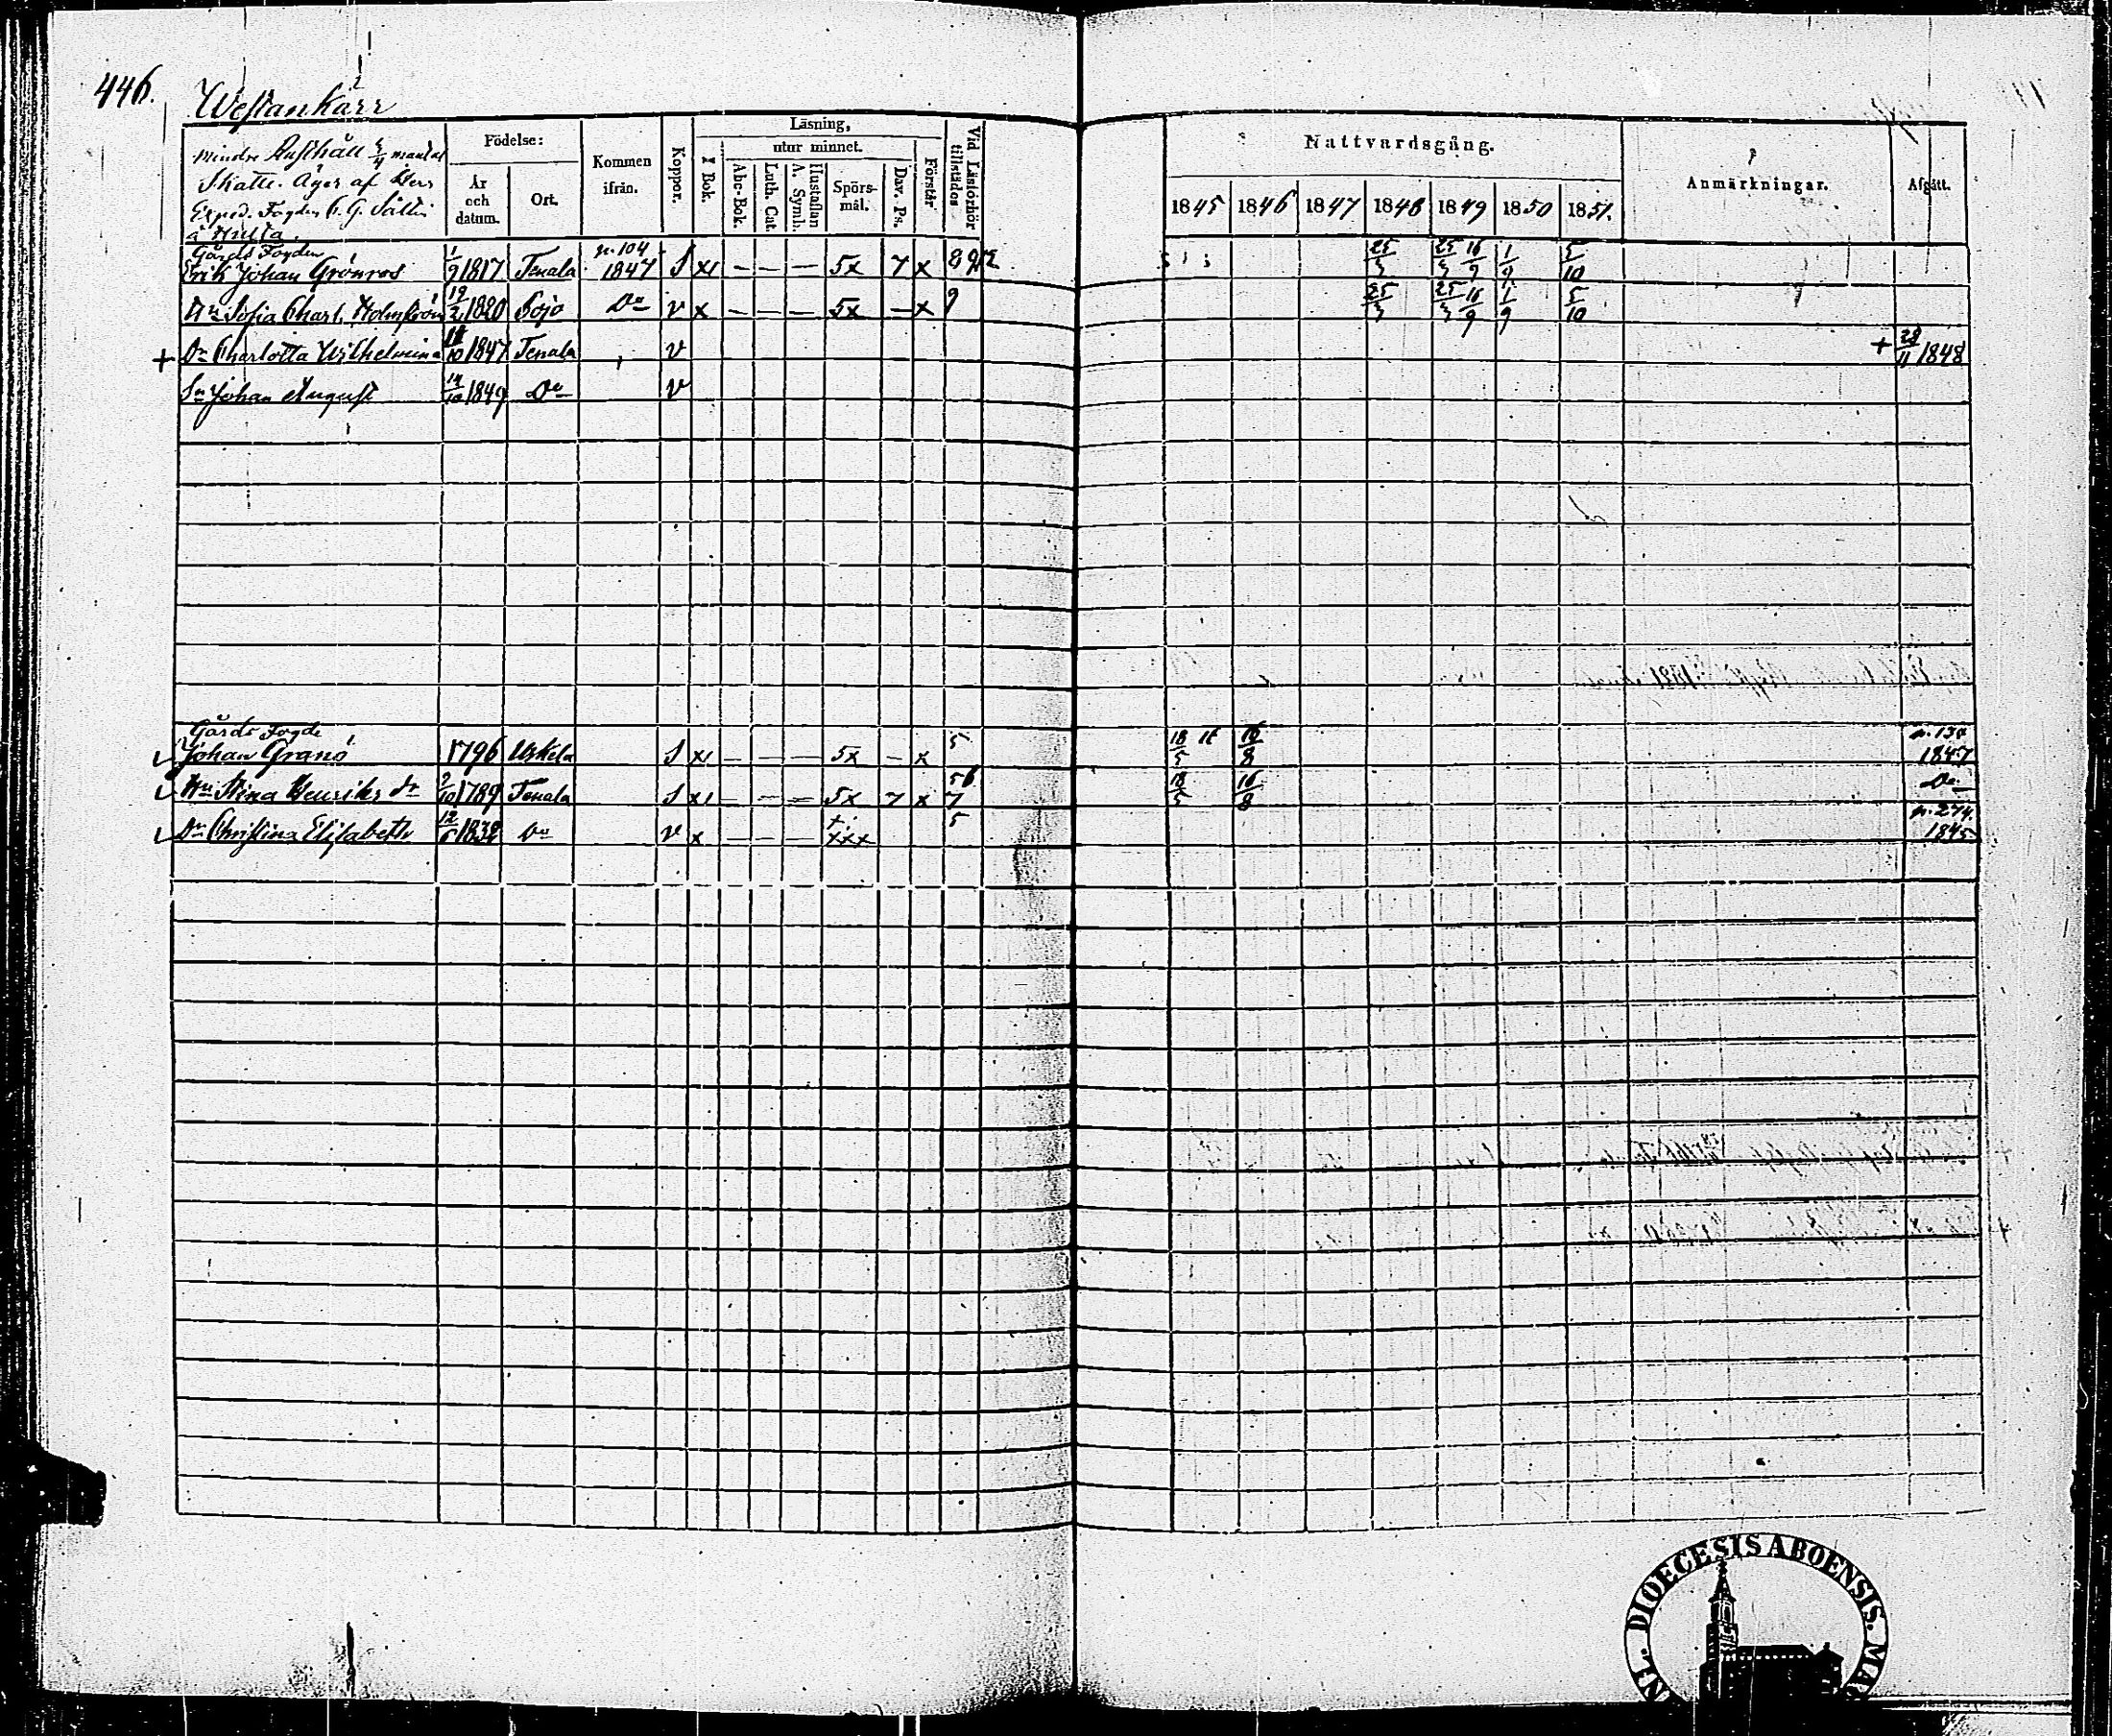 446.
Westankärr
Mindre Rusthåll mantal
Skatte. Äges af Herr
Exped. Fogden C. G. Sallin
Födelse:
År och datum.
Ort.
Kommen ifrån.
Koppor.
Läsning,
I Bok.
utur minnet.
Abc-Bok.
Luth. Cat.
Hustaflan A. Symb.
Spörsmål.
Dav. Ps.
Förstår
Vid Läsförhör tillstädes
Nattvardsgång.
1845 1846 1847 1848 1849 1850 1851.
Anmärkningar.
Afgått.
Gårds Fogden
Erik Johan Grönros 1/9 1817 Tenala p. 104 1847 S x1 — — — 5x 7 x 25/3 25/3 16/9 1/9 5/10
Hu Sofia Charl. Holmström 19/2 1820 Pojo Do v x — — — 5x — x 9 25/3 25/3 16/9 1/9 5/10
+ Dr Charlotta Wilhelmina 1847 Tenala v + 28/11 1848
Sn Johan August 14/10 1849 Do v
Gårds Fogde
Johan Granö 1796 Uskela S x1 — — — 5x — x 5 18/5 16/8 1847
Hu Stina Henriks dr 9/10 1789 Tenala S x1 — — — 5x 7 x 56 7 18/5 16/8 Do
Dr Christina Elisabeth 12/6 1832 Do v x — — — xxx 5 p. 274. 1845
DIOECESIS ABOENSIS.